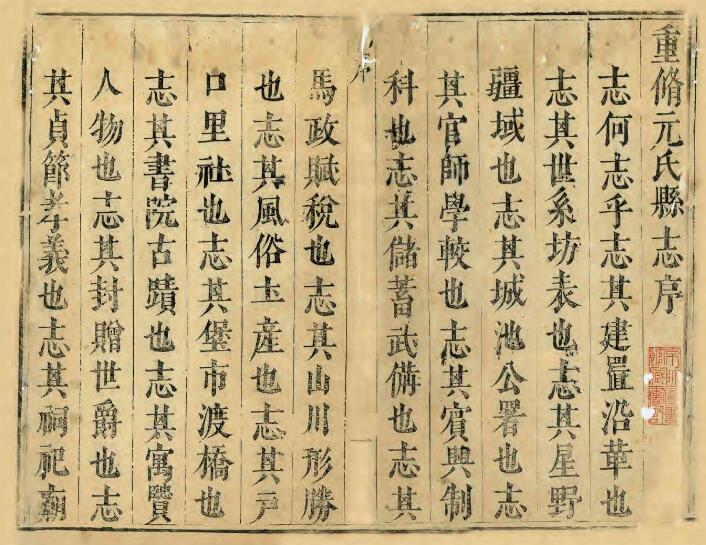 重脩元氏縣志序
志何志乎志其建置沿革也
志其世系坊表也志其星野
疆域也志其城池公署也志
其官師學較也志其賓興制
科也志其儲蓄武備也志其
序
一
馬政賦稅也志其山川形勝
也志其風俗土産也志其戸
口里社也志其堡市渡橋也
志其書院古蹟也志其寓賢
人物也志其封贈世爵也志
其貞節孝義也志其祠祀廟